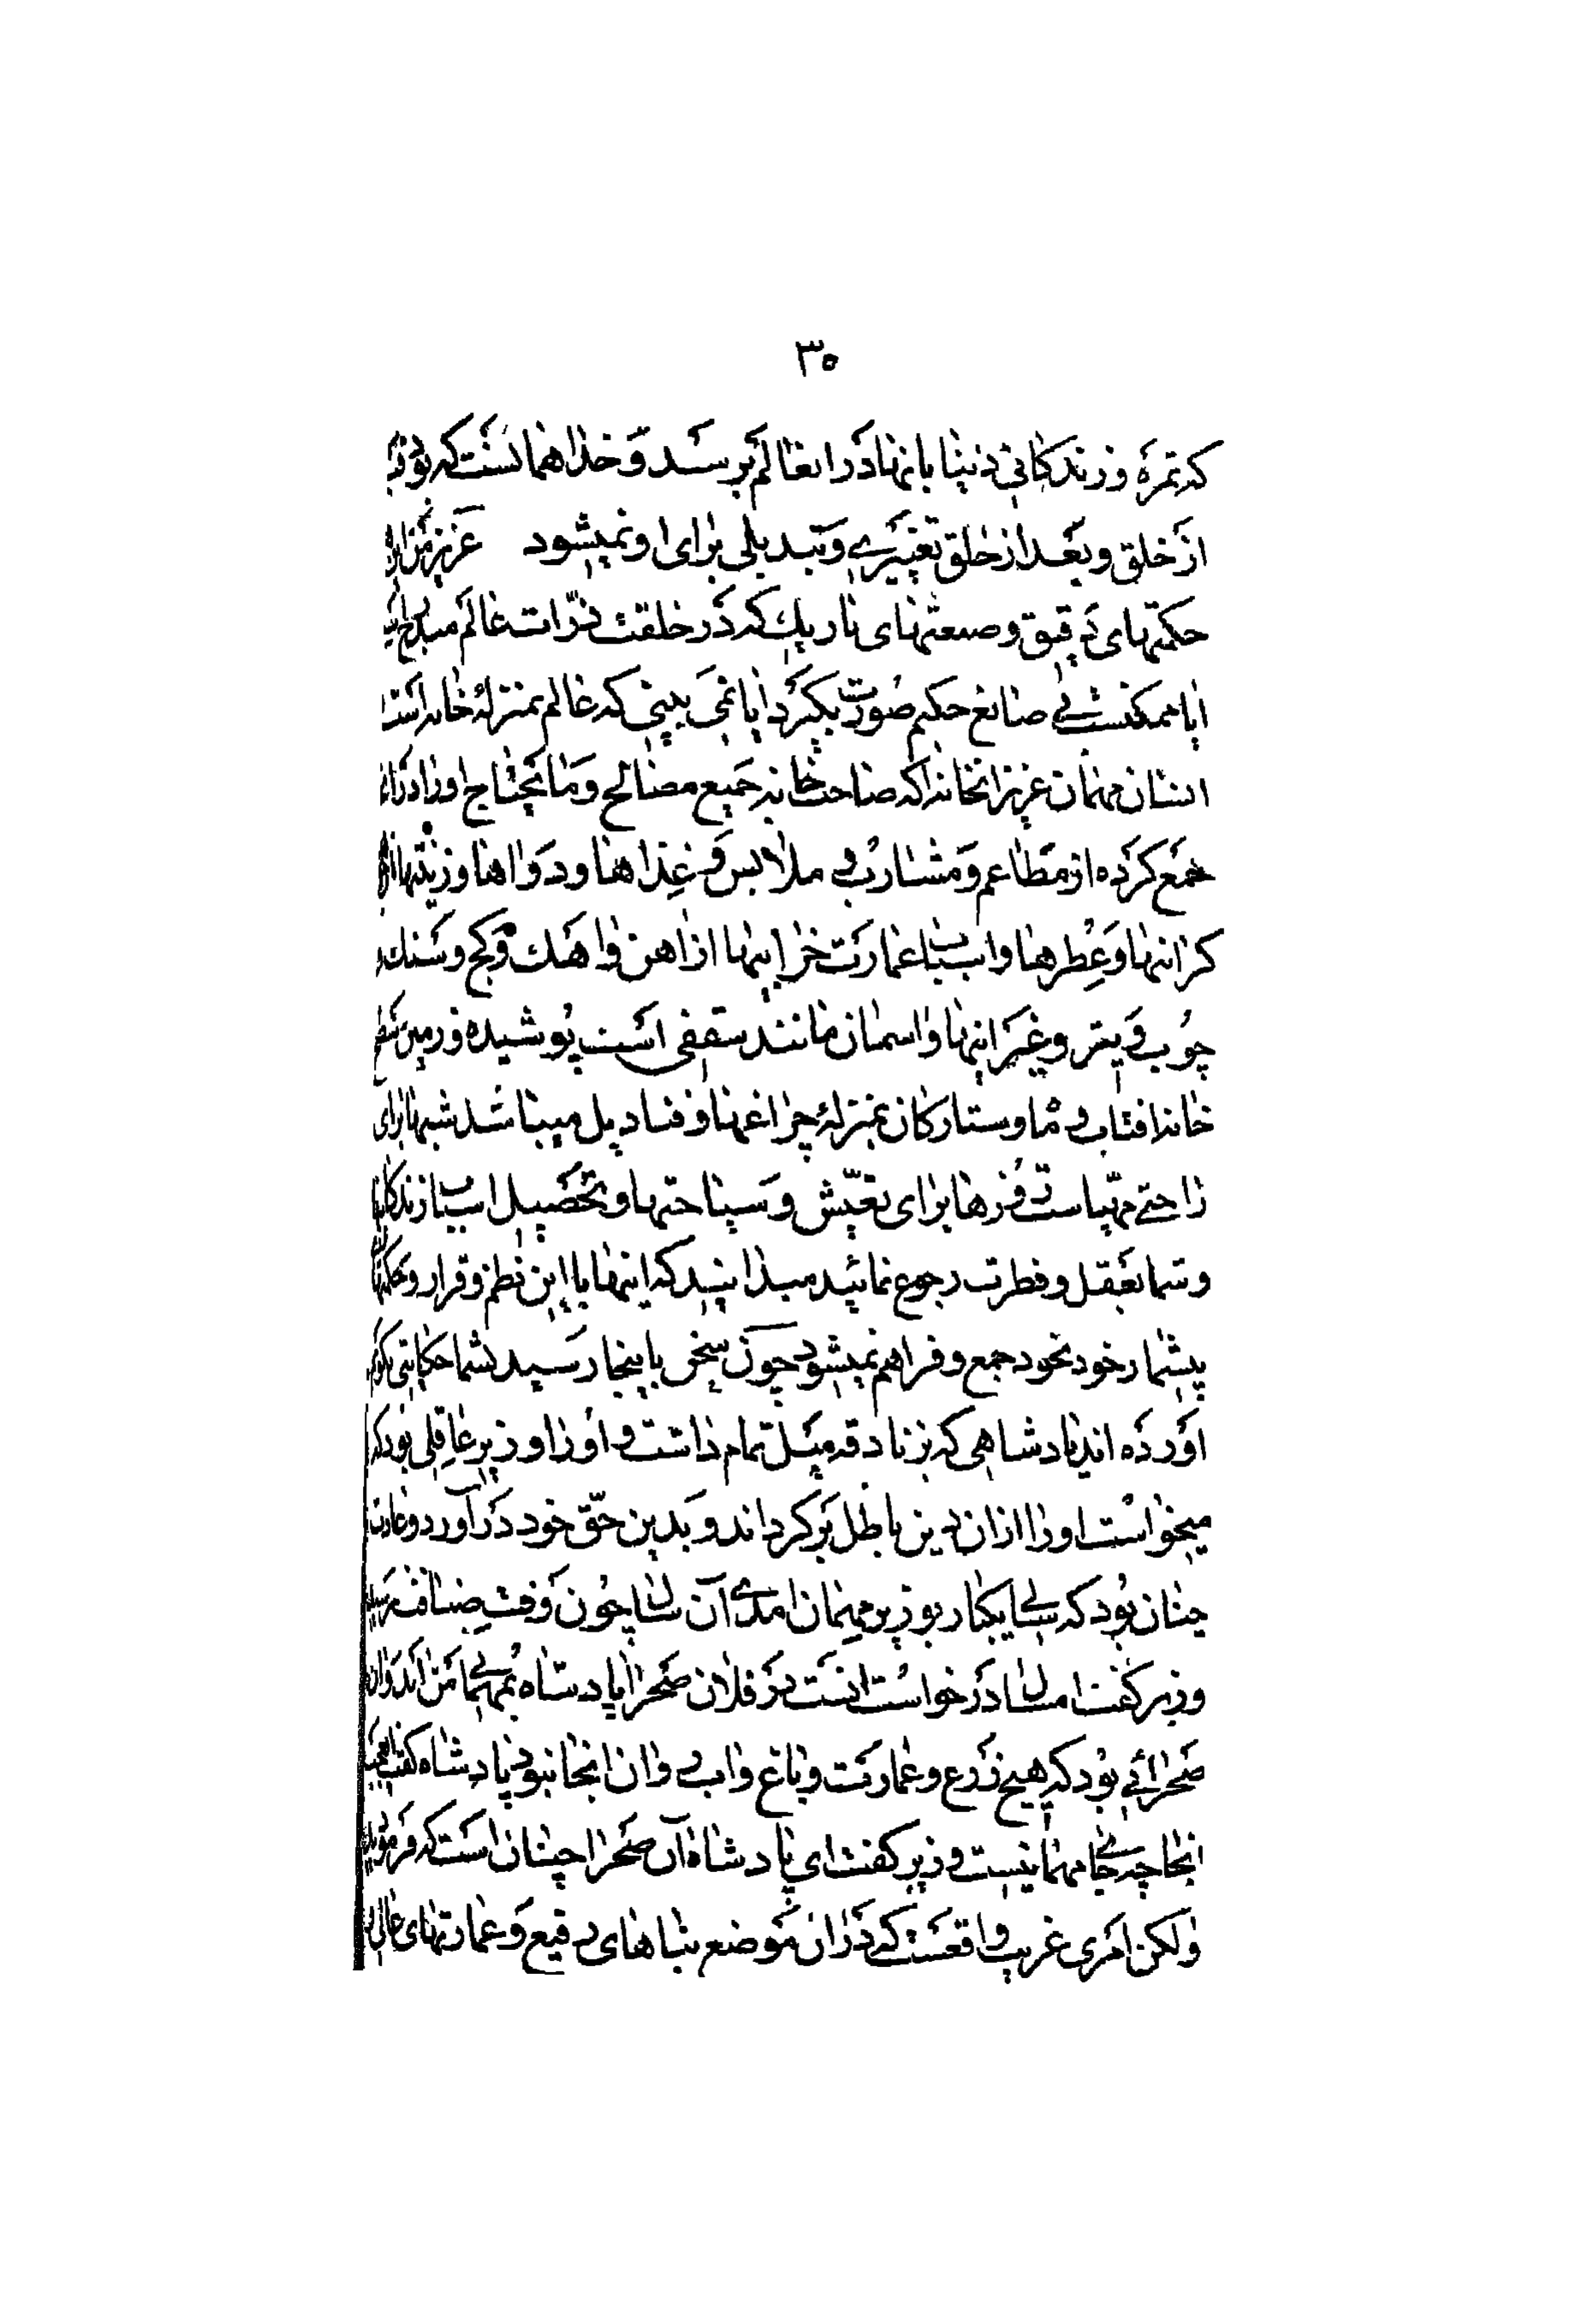 ۳۰
که ثمرهٔ زندکانی دنیا بانها در انعالم برسد و خدا همانست که بود
از خلق و بعد از خلق تغییرے و تبدیلی برای او نمیشود عزیز من
حکمتهای دقیق و صنعتهای باریك که در خلقت ذرّات عالم
ایا ممکنست بی صانع حکیم صورت بکیرد ایا نمی بینی که عالم بمنزلهٔ خانه است
انسان مهمان عزیز انخانه که صاحبخانه جمیع مصالح و مایحتاج او را دران
جمع کرده از مطاعم و مشارب و ملابس و غذاها و دواها و زینتها
کرانبها و عطرها و اسباب عمارت خرابیها از اهن و اهك و کچ و سنك
چوب و تیر و غیر اینها و اسمان مانند سقفی است پوشیده و زمین
خانه افتاب و ماه و ستارکان بمنزلهٔ چراغها و قنادیل میباشد شبها برای
راحتے مهیاست و روزها برای تعیّش و سیاحتها و تحصیل اسباب زندکانی
و شما بعقل و فطرت رجوع نمائید میدانید که اینها با این نظم و قرار و حکمتهای
بیشمار خود بخود جمع و فراهم نمیشود چون سخن باینجا رسید بشما حکایتی بکویم
اورده اند پادشاهی که بزنادقه میل تمام داشت و او را وزیر عاقلی بود که
میخواست او را از ان دین باطل برکرداند و بدین حقّ خود دراورد و عادت
چنان بود که سالی یکبار بوزیر مهمان امدے آن سال چون وقت ضیافت رسید
وزیر کفت امسال درخواست انست در فلان صحرا پادشاه بمهمانی من اید و ان
صحرائی بود که هیچ زرع و عمارت و باغ و اب روان انجا نبود پادشاه کفت
انجا چه جای مهمانیست وزیر کفت ای پادشاه آن صحرا چنان است که فرمودید
ولکن امری غریب واقعست که در ان موضع بناهای رفیع و عمارتهای عالی